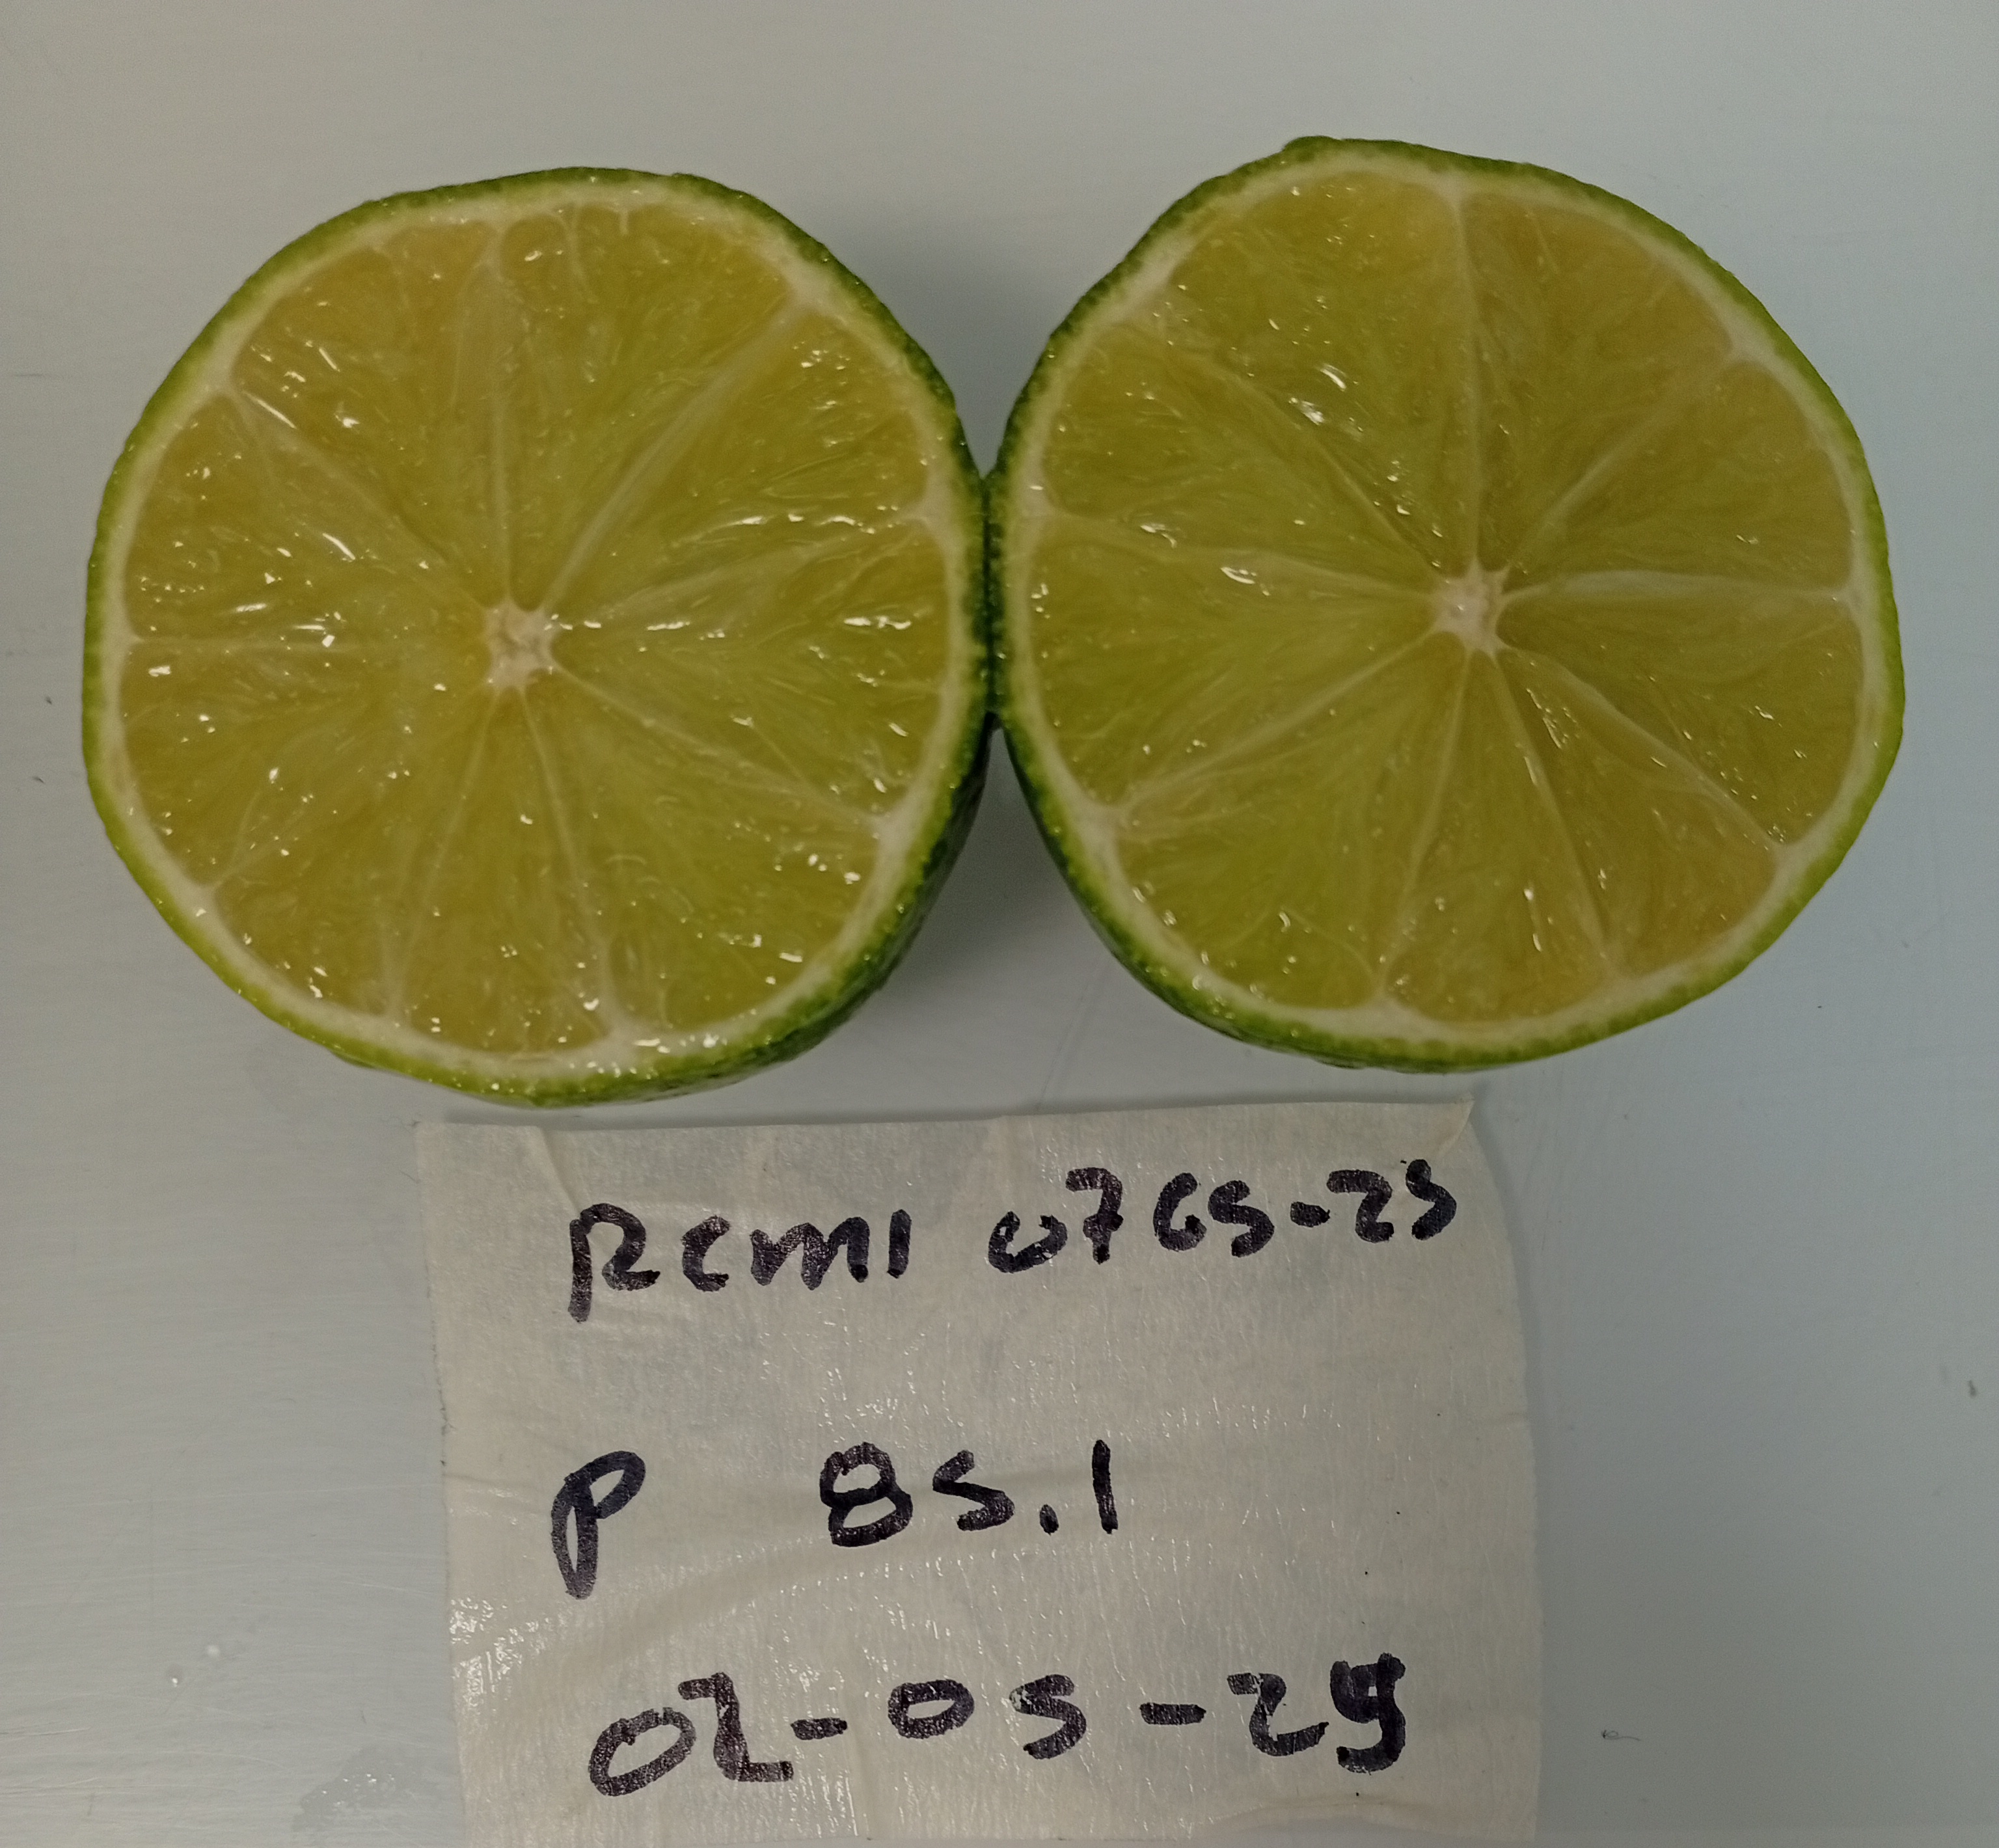 RCMI 0765-25
P 85.1
02-05-25